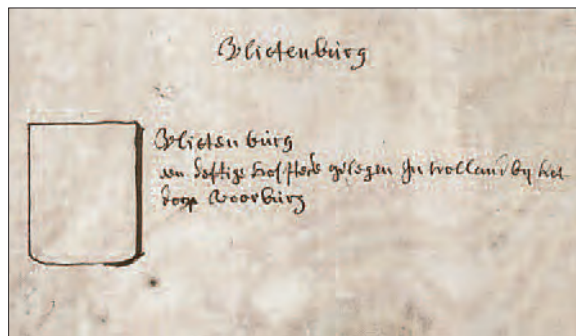 Vlietenburg
Vlietenburg
een deftige Hofstede gelegen In Holland by het
dorp Voorburg